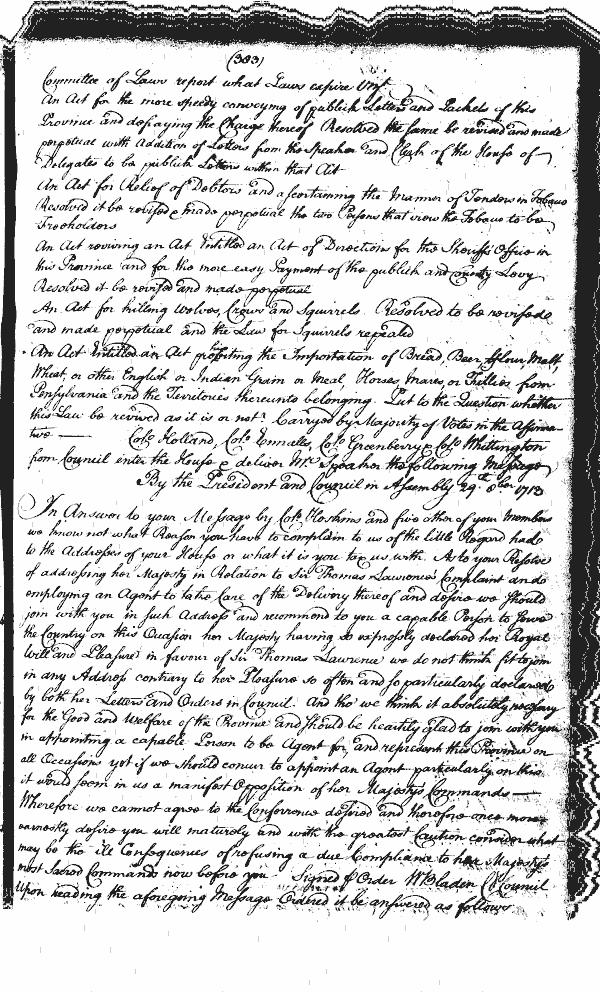 (383)
Committee of Laws report what Laws expire Vizt
An Act for the more speedy conveying of publick Letters and Packets of this
Province and defraying the Charge thereof Resolved the same be revised and made
perpetual with Addition of Letters from the Speaker and Clerk of the House of
Delegates to be publick Letters within that Act
An Act for Relief of Debtors and ascertaining the Manner of Tenders in Tobacco
Resolved it be revised & made perpetual the two Persons that view the Tobacco to be
Freeholders
An Act reviving an Act Entitled an Act of Direction for the Sheriffs Office in
this Province and for the more easy Payment of the publick and county Levy
Resolved it be revised and made perpetual
An Act for killing Wolves, Crows and Squirrels. Resolved to be revised
and made perpetual and the Law for Squirrels repealed
An Act Entitled an Act prohibiting the Importation of Bread, Beer, Flour, Malt,
Wheat, or other English or Indian Grain or Meal, Horses, Mares, or Fillies from
Pensylvania and the Territories thereunto belonging. Put to the Question whether
this Law be revived as it is or not? Carryed by Majority of Votes in the Affirma
tive — Colo Holland, Colo Ennalls, Colo Greenberry & Colo Whittington
from Council enter the House & deliver Mr Speaker the following Message
By the President and Council in Assembly 29th 8ber 1713
In Answer to your Message by Colo Hoskins and five other of your Members
we know not what Reason you have to complain to us of the little Regard had
to the Addresses of your House or what it is you tax us with. As to your Resolve
of addressing her Majesty in Relation to Sir Thomas Lawrence's Complaint and
employing an Agent to take Care of the Delivery thereof and desire we should
join with you in such Address and recommend to you a capable Person to serve
the Country on this Occasion her Majesty having so expressly declared her Royal
Will and Pleasure in favour of Sir Thomas Lawrence we do not think fit to join
in any Address contrary to her Pleasure so often and so particularly declared
by both her Letters and Orders in Council. And tho' we think it absolutely necessary
for the Good and Welfare of the Province and should be heartily glad to join with you
in appointing a capable Person to be Agent for, and represent this Province on
all Occasions yet if we should concur to appoint an Agent particularly on this
it would seem in us a manifest Opposition of her Majestys Commands —
Wherefore we cannot agree to the Conference desired and therefore once more
earnestly desire you will maturely and with the greatest Caution consider what
may be the ill Consequences of refusing a due Compliance to her Majesty's
most Sacred Commands now before you Signed p Order W Bladen Cl Council
Upon reading the aforegoing Message Ordered it be answered as follows